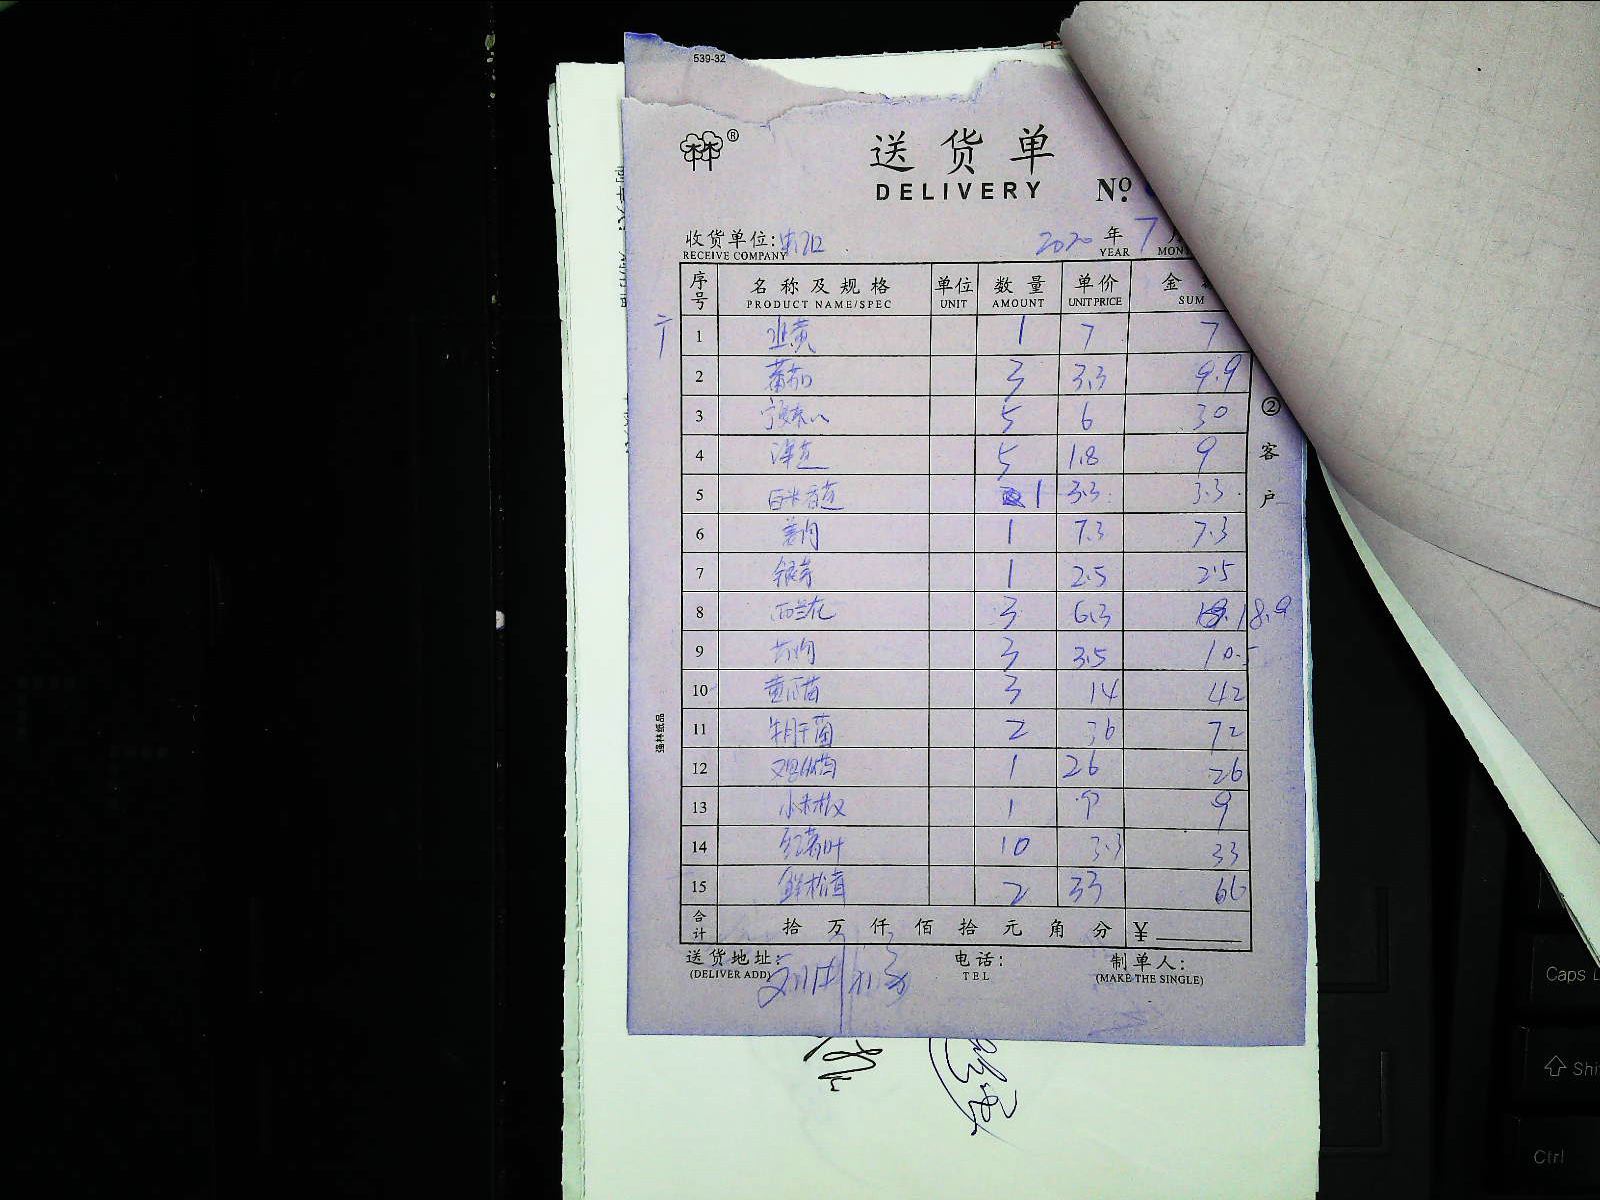 539-32
®
送货单
DELIVERY Nº.
收货单位:
RECEIVE COMPANY
2020 年 7
YEAR MON
序号 名称及规格 单位 数量 单价 金
PRODUCT NAME/SPEC UNIT AMOUNT UNIT PRICE SUM
1 韭黄 1 7 7
2 蕃茄 3 3.3 9.9
3 5 6 30
4 5 1.8 9
5 1 3.3 3.3
6 姜肉 1 7.3 7.3
7 银芽 1 2.5 2.5
8 西兰花 3 6.3 18.9
9 3 3.5 10.5
10 3 14 42
11 牛肝菌 2 36 72
12 1 26 26
13 小米椒 1 9 9
14 红薯叶 10 3.3 33
15 鲜松茸 2 33 66
合计 拾 万 仟 佰 拾 元 角 分 ¥
送货地址: 电话: 制单人:
(DELIVER ADD) TEL (MAKE THE SINGLE)
②客户
强林纸品
Caps L
Shi
Ctrl